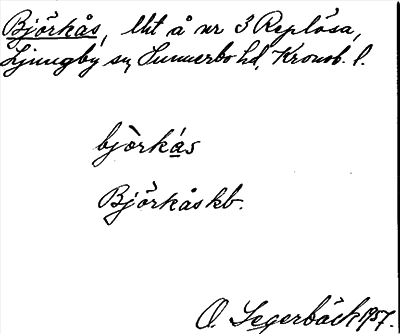 Björkås, lht å nr 3 Replösa,
Ljungby sn, Sunnerbo hd, Kronob. l.
bjò̀rkás
Björkås kb.
O. Segerbäck 1957.